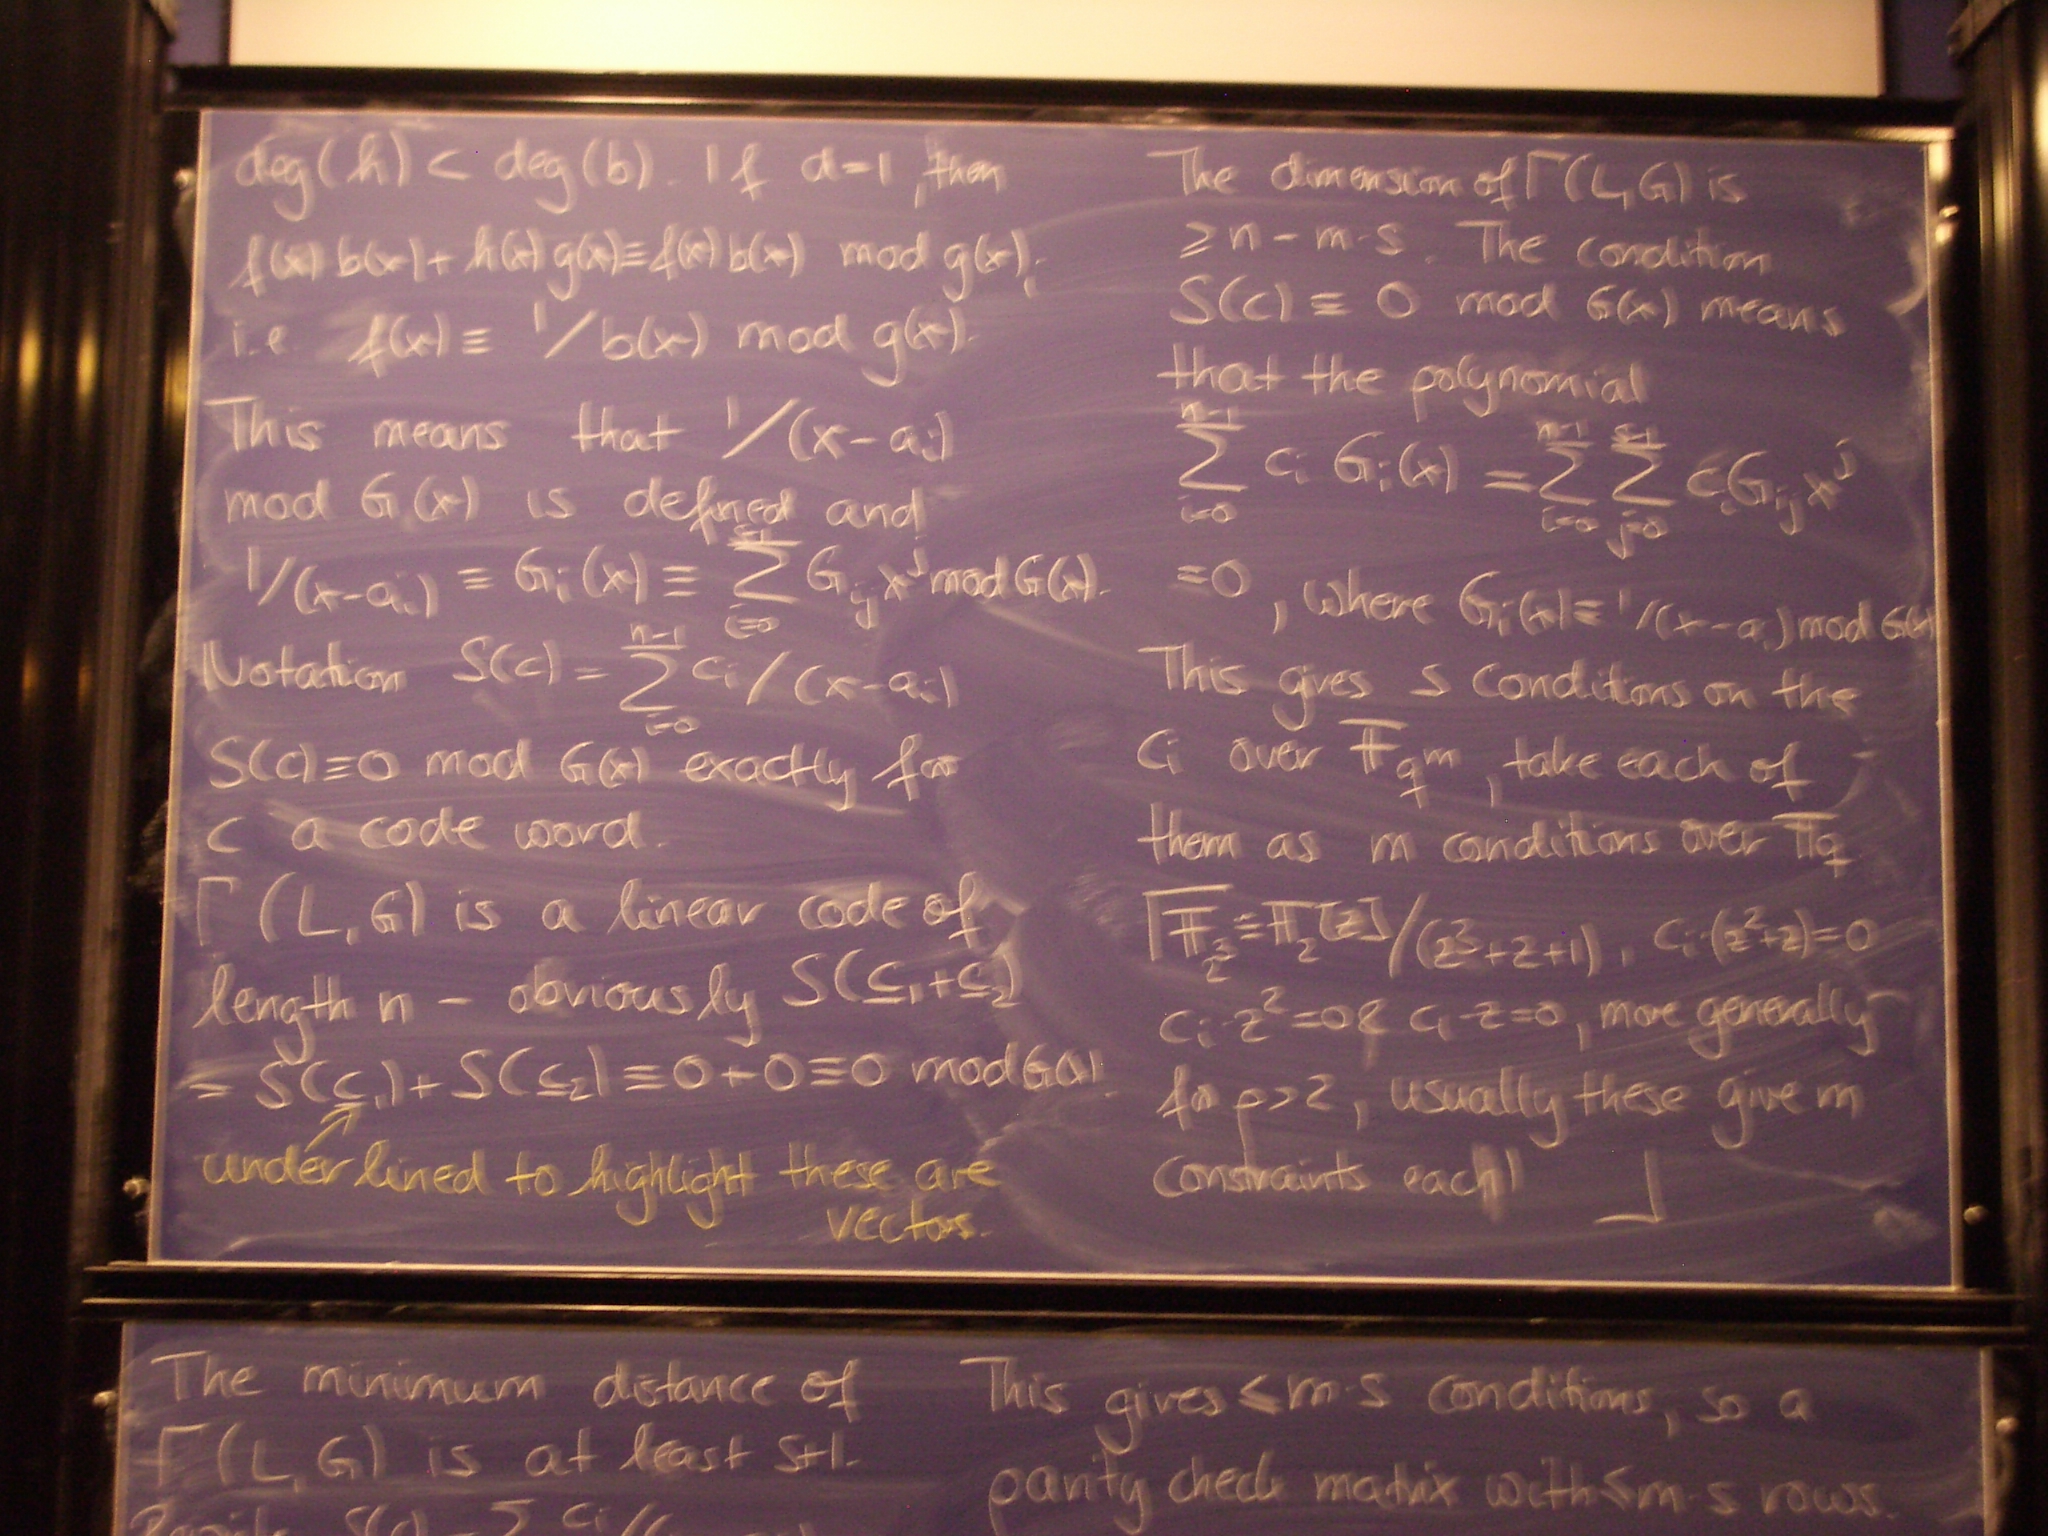 deg(h) < deg(b). If d=1, then
f(x) b(x) + h(x) g(x) ≡ f(x) b(x) mod g(x);
i.e f(x) ≡ 1/b(x) mod g(x).
This means that 1/(x-a_i)
mod G(x) is defined and
1/(x-a_i) ≡ G_i(x) ≡ ∑_{i=0}^{s-1} G_{ij} x^j mod G(x).
Notation S(c) = ∑_{i=0}^{n-1} c_i/(x-a_i)
S(c) ≡ 0 mod G(x) exactly for
c a code word.
Γ(L,G) is a linear code of
length n - obviously S(c_1+c_2)
= S(c_1) + S(c_2) ≡ 0+0 ≡ 0 mod G(x).
underlined to highlight these are
vectors.
The dimension of Γ(L,G) is
≥ n - m·s. The condition
S(c) ≡ 0 mod G(x) means
that the polynomial
∑_{i=0}^{n-1} c_i G_i(x) = ∑_{i=0}^{n-1} ∑_{j=0}^{s-1} c_i G_{ij} x^j
=0, where G_i(x) ≡ 1/(x-a_i) mod G(x)
This gives s conditions on the
c_i over F_{q^m}, take each of
them as m conditions over F_q
⌈F_{2^3} ≡ F_2[z]/(z^3+z+1), c_i·(z^2+z)=0
c_i·z^2=0 & c_i·z=0, more generally
for p>2, usually these give m
constraints each) ⌋
The minimum distance of
Γ(L,G) is at least s+1.
S(c) = ∑ c_i/(
This gives ≤ m·s conditions, so a
parity check matrix with ≤ m·s rows.